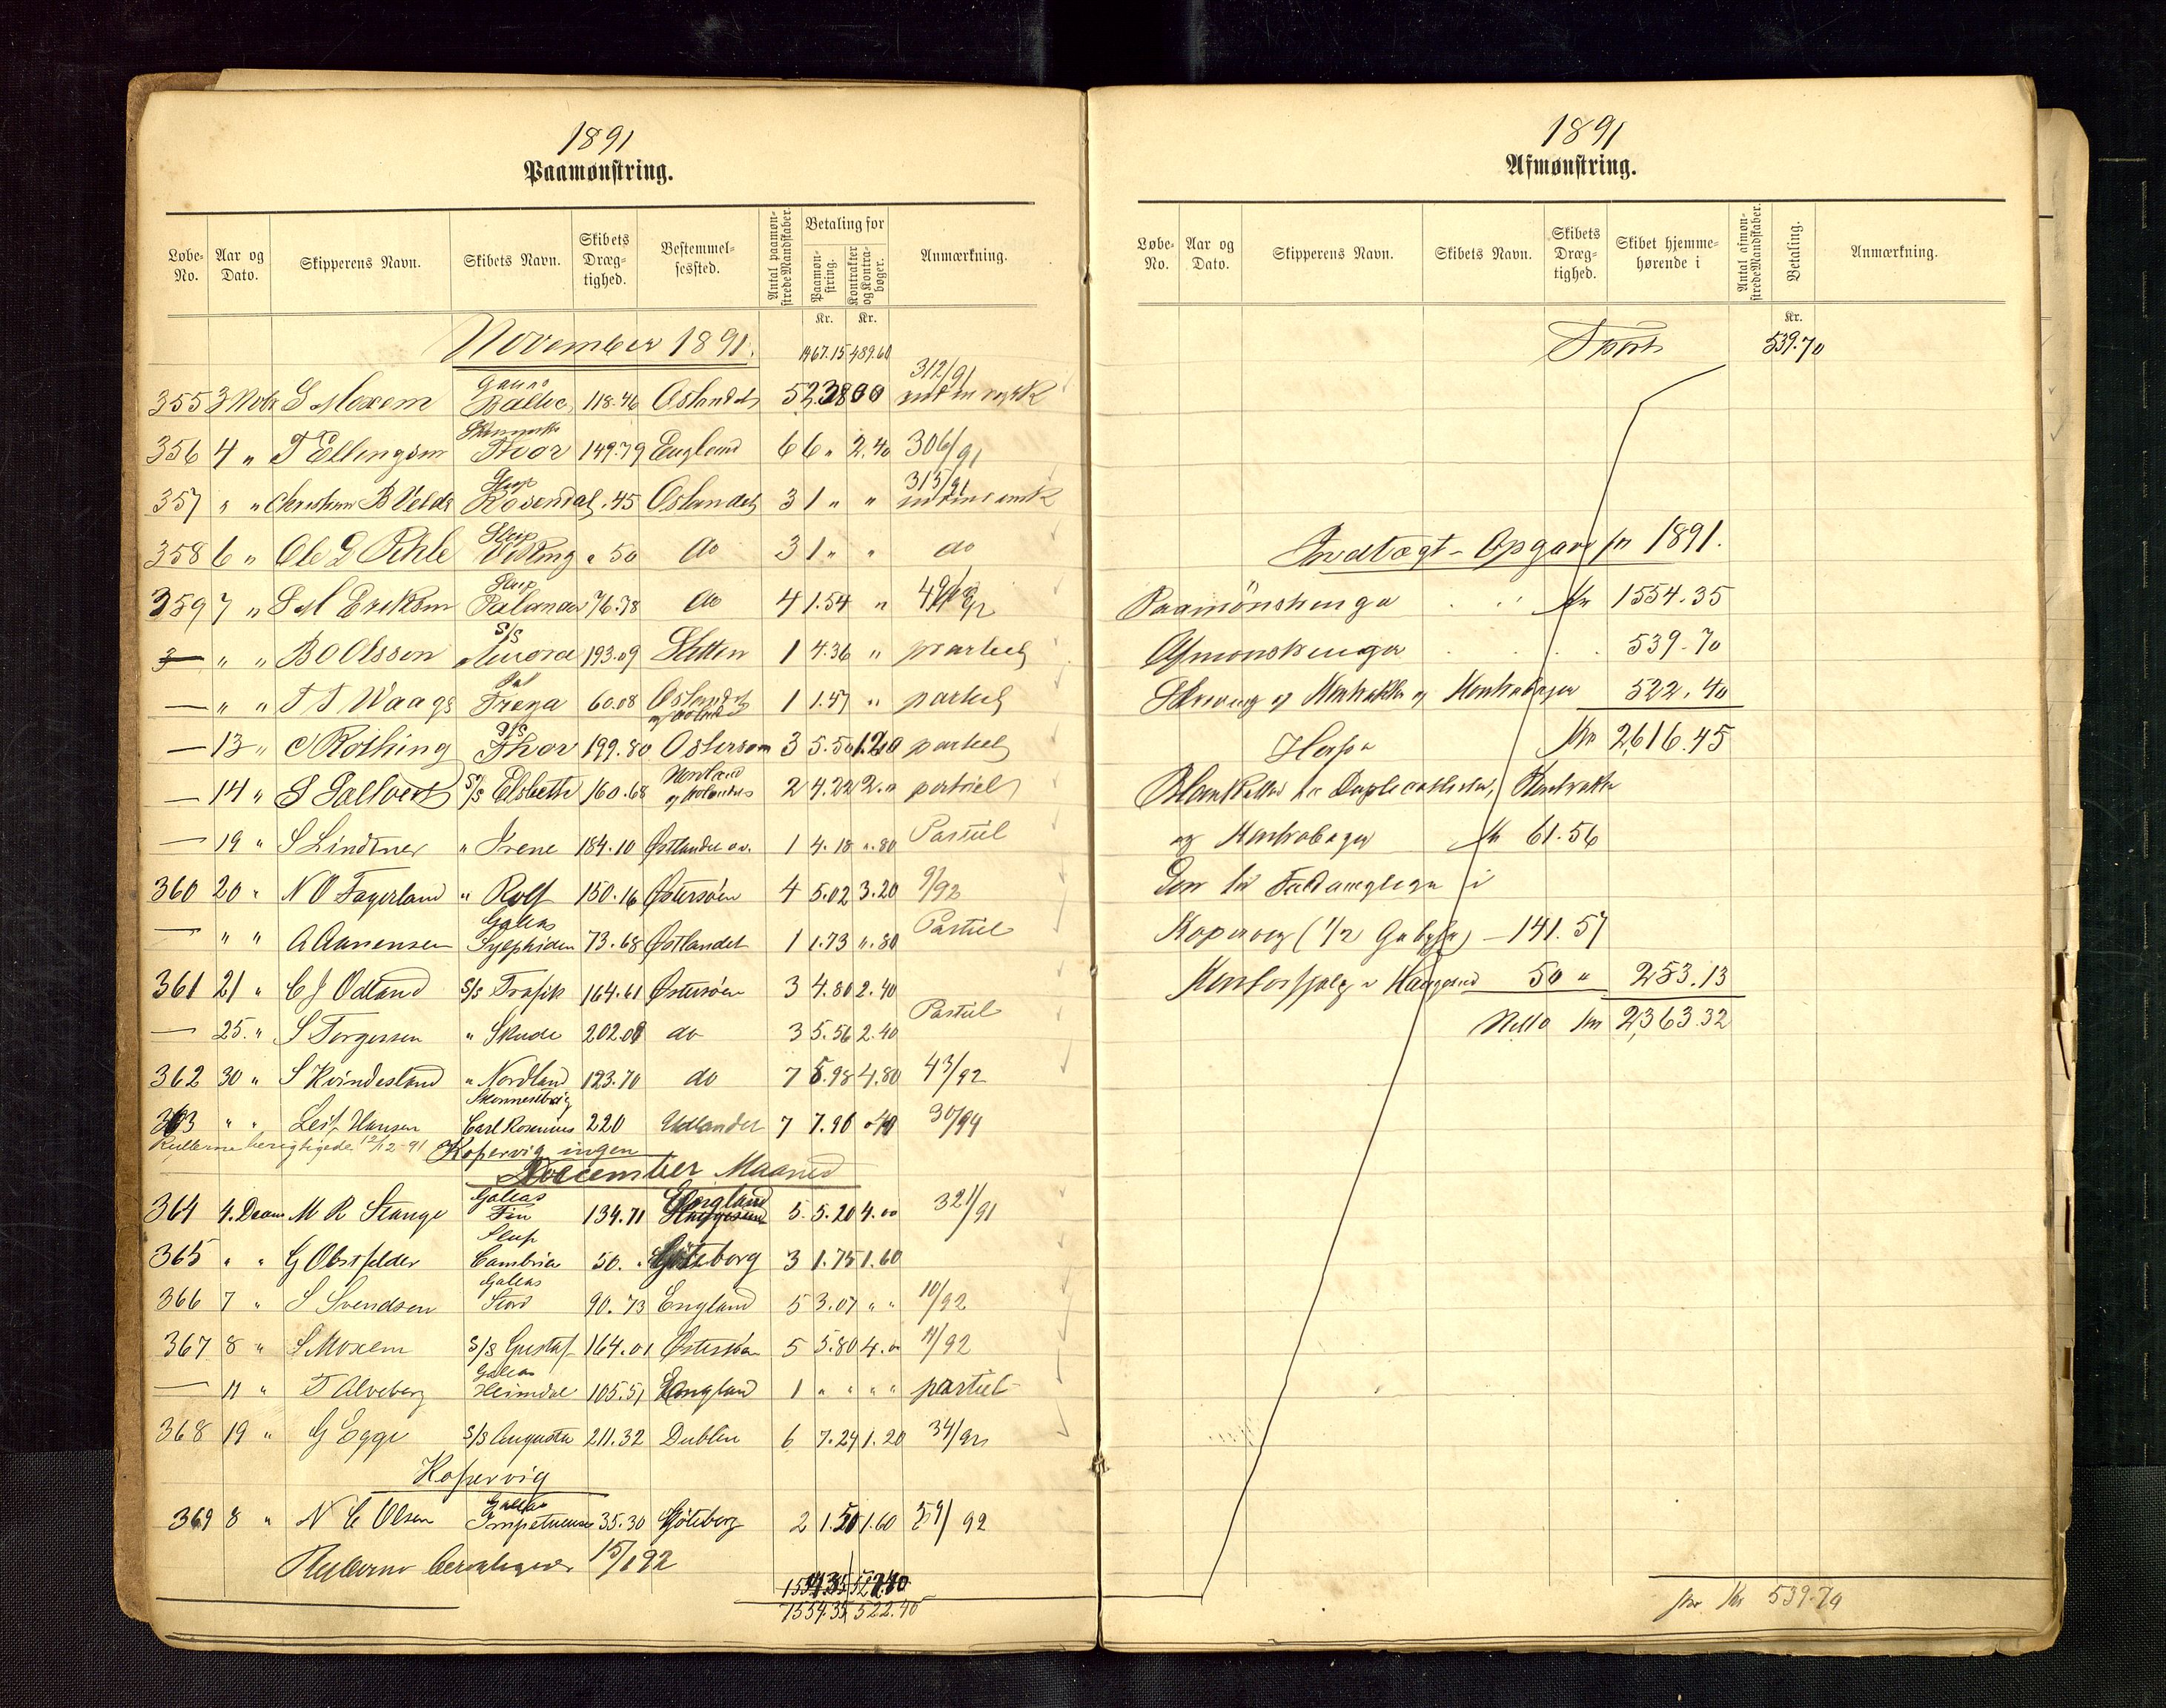 1891
Paamønstring.
Løbe-No. Aar og Dato. Skipperens Navn. Skibets Navn. Skibets Dræg-tighed. Bestemmel-sessted. Antal paamøn-strede Mandskaber. Betaling for Paamøn-string. Kontrakter og Kontra-bøger. Anmærkning.
Kr. Kr.
November 1891. 1467.15 489.60
355 3 Novbr S Moxem Balder 118.46 Østlandet 5 2.38 00 312/91
356 4 " T Ellingsen Thor 149.79 England 6 6 " 2.40 306/91
357 " " Christian B Velde Slup Rosendal .45 Østlandet 3 1 " " 315/91
358 6 " Ole D Pihle Slup Viking " 50 do 3 1 " " do
359 7 " S M Eriksen Slup Palander 76.78 do 4 1.54 "
— " " B O Olsson S/S Aurora 193.09 Stettin 1 4.36 " partiel
— " " T T Waage Freya 60.08 Østlandet 1 1.47 " partiel
— 13 " C Rothing S/S Thor 199.80 Østersøen 3 5.50 1.20 partiel
— 14 " S/S Elsbeth 160.68 Nordland 2 4.22 2." partiel
— 19 " S Lindtner " Irene 184.10 Østlandet 1 4.18 ".80 Partiel
360 20 " N O Fagerland " Rolf 150.16 Østersøen 4 5.02 3.20 9/92
— " " A Aanensen Galeas Sylphiden 73.68 Østlandet 1 1.73 ".80 Partiel
361 21 " C J Odland S/S Trafik 164.61 Østersøen 3 4.80 2.40
— 25 " S Torgersen " Skude 202.08 do 3 5.56 2.40 Partiel
362 30 " S Kvindesland " Nordland 123.70 do 7 5.98 4.80 43/92
363 " " Leif Hansen Skonnertbrig Carl Rosenius 220 Udlandet 7 7.90 30/94
Rullerne berigtigede 12/12-91 Kopervig ingen
December Maaned
364 4. Decem M R Stange Galeas Fin 134.71 England 5 5.20 4.00 321/91
365 " " G Obstfelder Slup Cambria 50. " Göteborg 3 1.75 1.60
366 7 " S Svendsen Galeas Stord 90.73 England 5 3.07 " " 10/92
367 8 " S Moxem S/S Gustaf 164.01 Østersøen 5 5.80 4." 11/92
— 11 " T Alveberg Galeas Heimdal 105.51 England 1 " " " " partiel
368 19 " G Egge S/S Augusta 211.32 Dublin 6 7.24 1.20 34/92
Kopervig
369 8 " N C Olsen Galeas 35.30 Göteborg 2 1.50 1.60 59/92
Rullerne 15/1 92
1554.35 522.40
1891
Afmønstring.
Løbe-No. Aar og Dato. Skipperens Navn. Skibets Navn. Skibets Dræg-tighed. Skibet hjemme-hørende i Antal afmøn-strede Mandskaber. Betaling. Anmærkning.
Kr.
Trspt 539.70
Indtægt-Opgave for 1891.
Paamönstringer . . Kr 1554.35
Afmonstringer . . . 539.70
Skrivning af Kontrakter og Kontrabøger 522.40
Kr 2,616.45
Herfra
Blanketter til Duplicatlister, Kontrakter
og Kontrabøger Kr 61.56
Kopervig (1/2 Gebyr) – 141.57
Kontorhjælp i Haugesund 50 " 253.13
Netto Kr 2,363.32
Kr 539.70